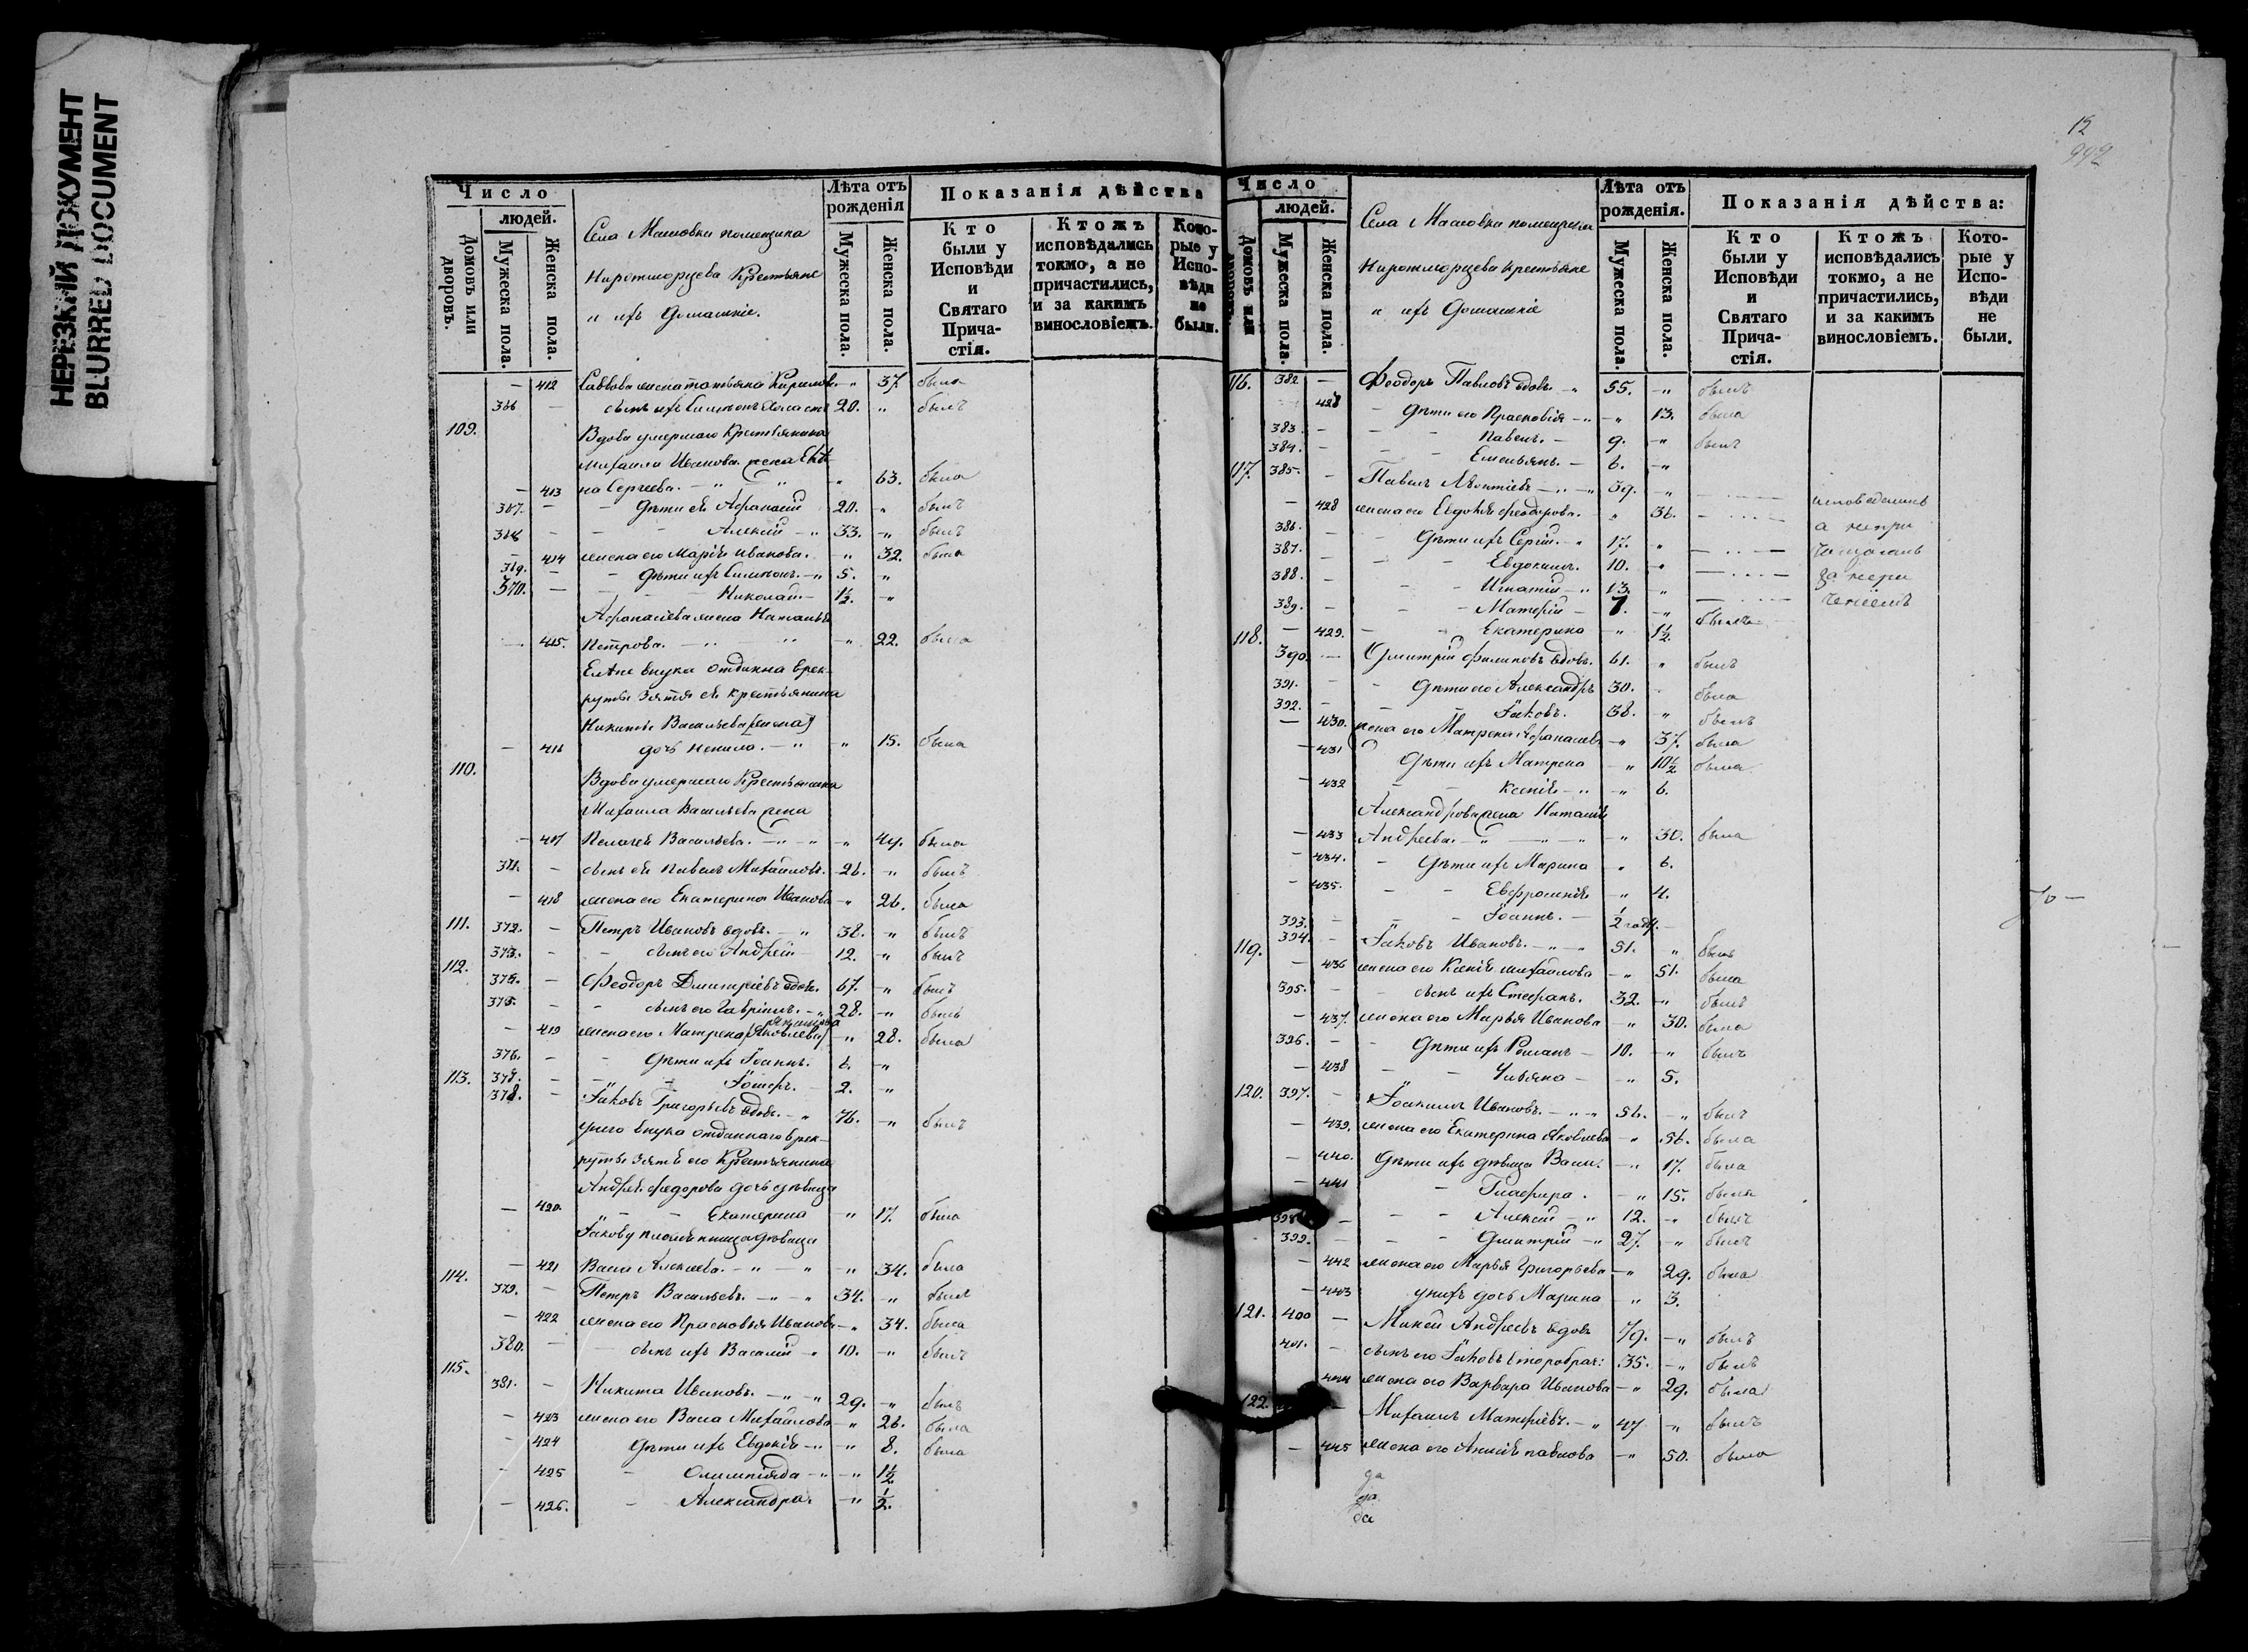 НЕРЕЗКИЙ ДОКУМЕНТ
BLURRED DOCUMENT
Число
Домовъ или дворовъ.
людей.
Мужеска пола.
Женска пола.
Села Масловки помещика
крестьяне
и ихъ домашніе.
Лѣта отъ рожденія
Мужеска пола.
Женска пола.
Показанія дѣйства
Кто были у Исповѣди и Святаго Прича-стія.
Ктожъ исповѣдались токмо, а не причастились, и за какимъ винословіемъ.
Кото-рые у Испо-вѣди не были.
— 412 Саввова жена Татьяна Кирилов. " 37. была
366 — сынъ ихъ Симеонъ 20. " былъ
109. Вдова умершаго Крестьянина
Михаила Иванова жена
— 413 на Сергеева. " 63. была
367. — Дѣти ея Афанасій 20. " былъ
368 — Алексій 33. " былъ
— 414 жена его Марія Иванова. " 32. была
369. — Дѣти ихъ Симеонъ. 5. "
370. — Николай 1½. "
Афанасіева жена Наталья
— 415. Петрова. " 22. была
Ея же внука отданна врек-
руты зятя ея крестьянина
Никиты Васильева жена
— 416 дочь Ненила. " 15. была
110. Вдова умершаго Крестьянина
Михаила Васильева жена
— 417 Пелагея Васильева. " 44. была
371. — сынъ ея Павелъ Михайловъ. 26. " былъ
— 418 жена его Екатерина Иванова " 26. была
111. 372. — Петръ Ивановъ вдовъ. 38. " былъ
373. — сынъ его Андрей 12. " былъ
112. 374. — Феодоръ Дмитріевъ вдов. 67. " былъ
375. — сынъ его Гавріилъ. 28. " былъ
— 419 жена его Матрена Яковлева " 28. была
376. — Дѣти ихъ Іоаннъ. 6. "
377. — Іосифъ. 2. "
113. 378. — Іаковъ Григорьевъ вдовъ. 76. " былъ
у него внука отданнаго врек-
руты зятя его Крестьянина
Андрея Федорова дочь дѣвица
— 420. Екатерина " 17. была
Іакову племянница дѣвица
— 421 Васса Алексеева. " 34. была
114. 379. — Петръ Васильевъ. 34. " былъ
— 422 жена его Прасковья Иванова " 34. была
380. — сынъ ихъ Василій 10. " былъ
115. 381. — Никита Ивановъ. 29. " былъ
— 423 жена его Васса Михайлова " 26. была
— 424 Дѣти ихъ Евдокія " 8. была
— 425 Олимпіада " 1½
— 426. Александра. " ½.
12
992
Число
Домовъ или дворовъ.
людей.
Мужеска пола.
Женска пола.
Села Масловки помещика
крестьяне
и ихъ Домашніе
Лѣта отъ рожденія.
Мужеска пола.
Женска пола.
Показанія дѣйства:
Кто были у Исповѣди и Святаго Прича-стія.
Ктожъ исповѣдались токмо, а не причастились, и за какимъ винословіемъ.
Кото-рые у Испо-вѣди не были.
116. 382 — Феодоръ Павловъ вдовъ. 55. " былъ
428 Дѣти его Прасковія " 13. была
383. — Павелъ. 9. " былъ
384. — Емельянъ. 6. "
117. 385. — Павелъ Леонтіевъ 39. " исповедались
— 428 жена его Евдокія Феодорова. " 36. а непри
386. — Дѣти ихъ Сергій. 17. "
387. — Евдокимъ. 10. " за
388. — Игнатій 13. "
389. — Матфій 7. "
— 429. Екатерина " 1½.
118. 390. — Дмитрій Филиповъ вдовъ. 61. " былъ
391. — Дѣти его Александръ 30. была
392. — Іаковъ. 38. " былъ
— 430. жена его Матрена Афанасиев " 37. была
— 431 Дѣти ихъ Матрена " 10½ была
— 432 Ксенія " 6.
Александрова жена Наталія
— 433 Андреева. " 30. была
— 434. Дѣти ихъ Марина " 6.
— 435. Евфросинія " 4.
393. — Іоаннъ. ½ году.
119. 394. — Іаковъ Ивановъ. 51. " былъ
— 436 жена его Ксенія Михайлова " 51. была
395. — сынъ ихъ Стефанъ. 32. " былъ
— 437. жена его Марья Иванова " 30. была
396. — Дѣти ихъ Романъ 10. " былъ
— 438 Ульяна " 5.
120. 397. — Іоакимъ Ивановъ. 56. " былъ
— 439. жена его Екатерина Яковлева " 56. была
— 440. Дѣти ихъ дѣвица Васи. " 17. была
— 441 Глафира. " 15. была
398 — Алексій 12. " былъ
399. — Дмитрій 27. " былъ
— 442 жена его Марья Григорьева " 29. была
— 443 у нихъ дочь Марина " 3.
121. 400 — Мокей Андреевъ вдовъ 79. " былъ
401. — сынъ его Іаковъ второбрач: 35. " былъ
444 жена его Варвара Иванова " 29. была
122. — Михаилъ Матфіевъ. 47 " былъ
— 445 жена его Анисія Павлова " 50. была
да
да
да